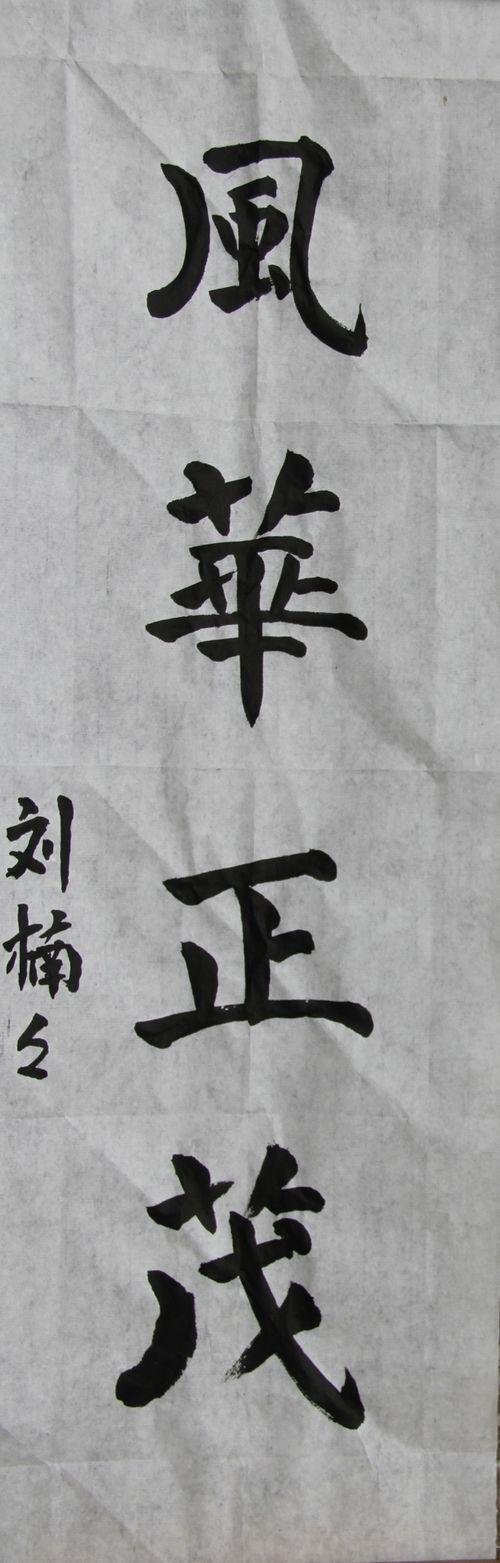 風華正茂
刘楠々